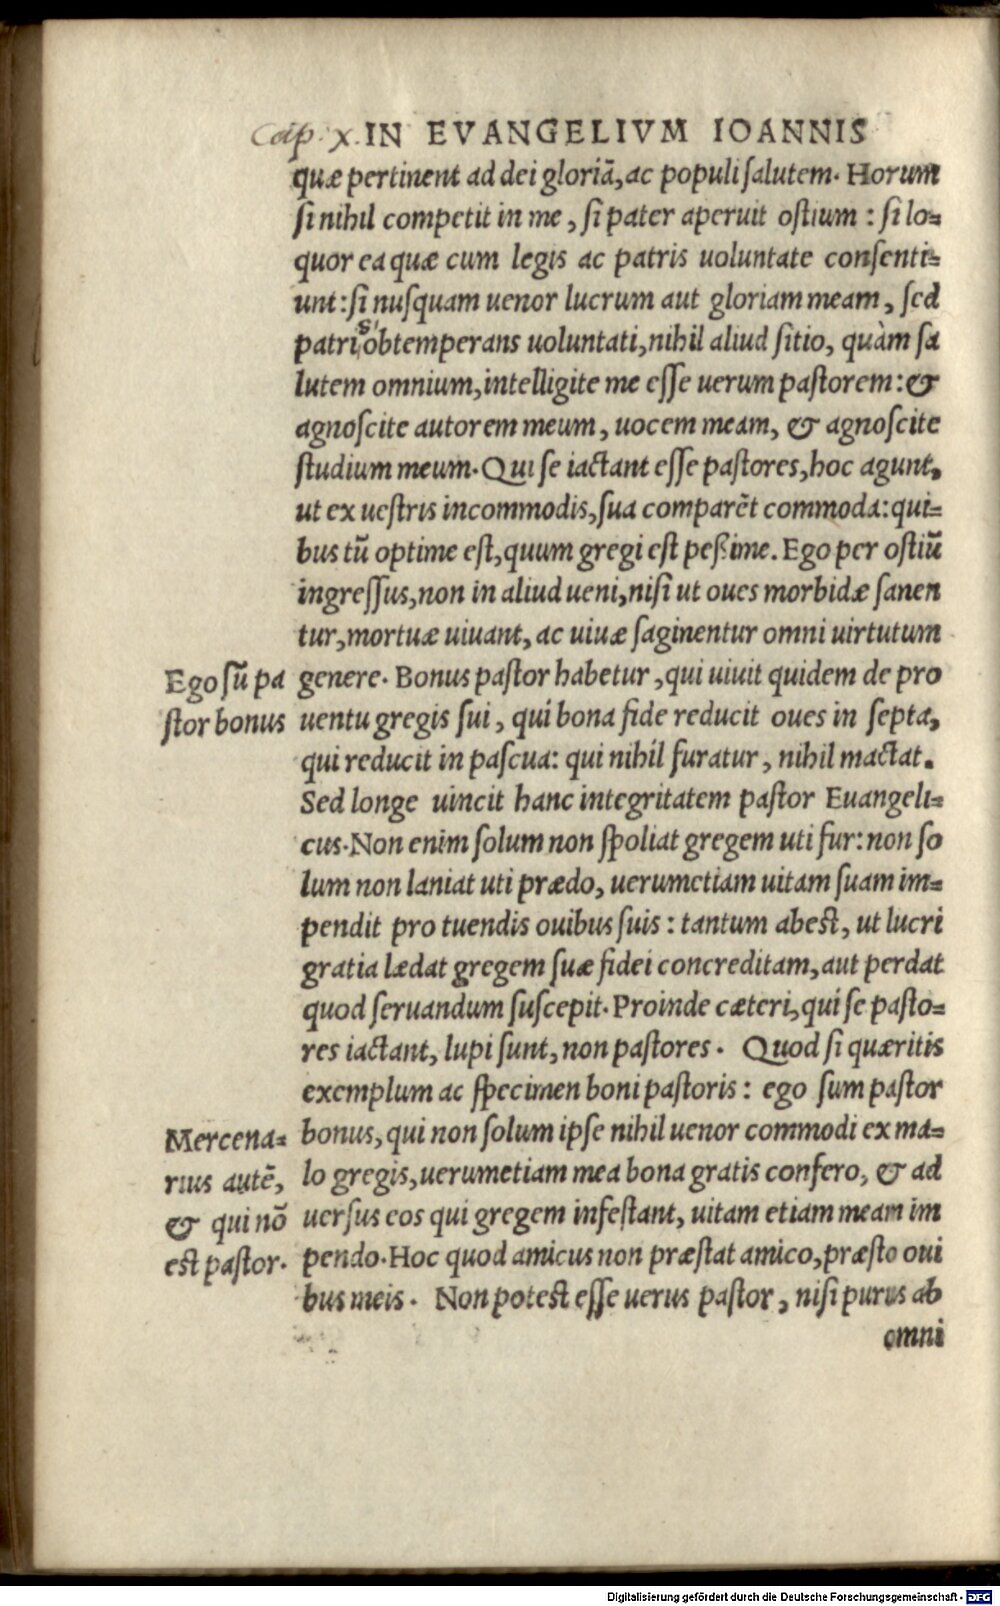 Cap. x. IN EVANGELIVM IOANNIS
quæ pertinent ad dei gloriā, ac populi salutem. Horum
si nihil competit in me, si pater aperuit ostium: si lo=
quor ea quæ cum legis ac patris uoluntate consenti=
unt: si nusquam uenor lucrum aut gloriam meam, sed
patris obtemperans uoluntati, nihil aliud sitio, quàm sa
lutem omnium, intelligite me esse uerum pastorem: &
agnoscite autorem meum, uocem meam, & agnoscite
studium meum. Qui se iactant esse pastores, hoc agunt,
ut ex uestris incommodis, sua comparēt commoda: qui=
bus tū optime est, quum gregi est peßime. Ego per ostiū
ingressus, non in aliud ueni, nisi ut oues morbidæ sanen
tur, mortuæ uiuant, ac uiuæ saginentur omni uirtutum
Ego sū pa
stor bonus
genere. Bonus pastor habetur, qui uiuit quidem de pro
uentu gregis sui, qui bona fide reducit oues in septa,
qui reducit in pascua: qui nihil furatur, nihil mactat.
Sed longe uincit hanc integritatem pastor Euangeli=
cus. Non enim solum non spoliat gregem uti fur: non so
lum non laniat uti prædo, uerumetiam uitam suam im=
pendit pro tuendis ouibus suis: tantum abest, ut lucri
gratia lædat gregem suæ fidei concreditam, aut perdat
quod seruandum suscepit. Proinde cæteri, qui se pasto=
res iactant, lupi sunt, non pastores. Quod si quæritis
exemplum ac specimen boni pastoris: ego sum pastor
Mercena=
rius autē,
& qui nō
est pastor.
bonus, qui non solum ipse nihil uenor commodi ex ma=
lo gregis, uerumetiam mea bona gratis confero, & ad
uersus eos qui gregem infestant, uitam etiam meam im
pendo. Hoc quod amicus non præstat amico, præsto oui
bus meis. Non potest esse uerus pastor, nisi purus ab
omni
Digitalisierung gefördert durch die Deutsche Forschungsgemeinschaft - DFG